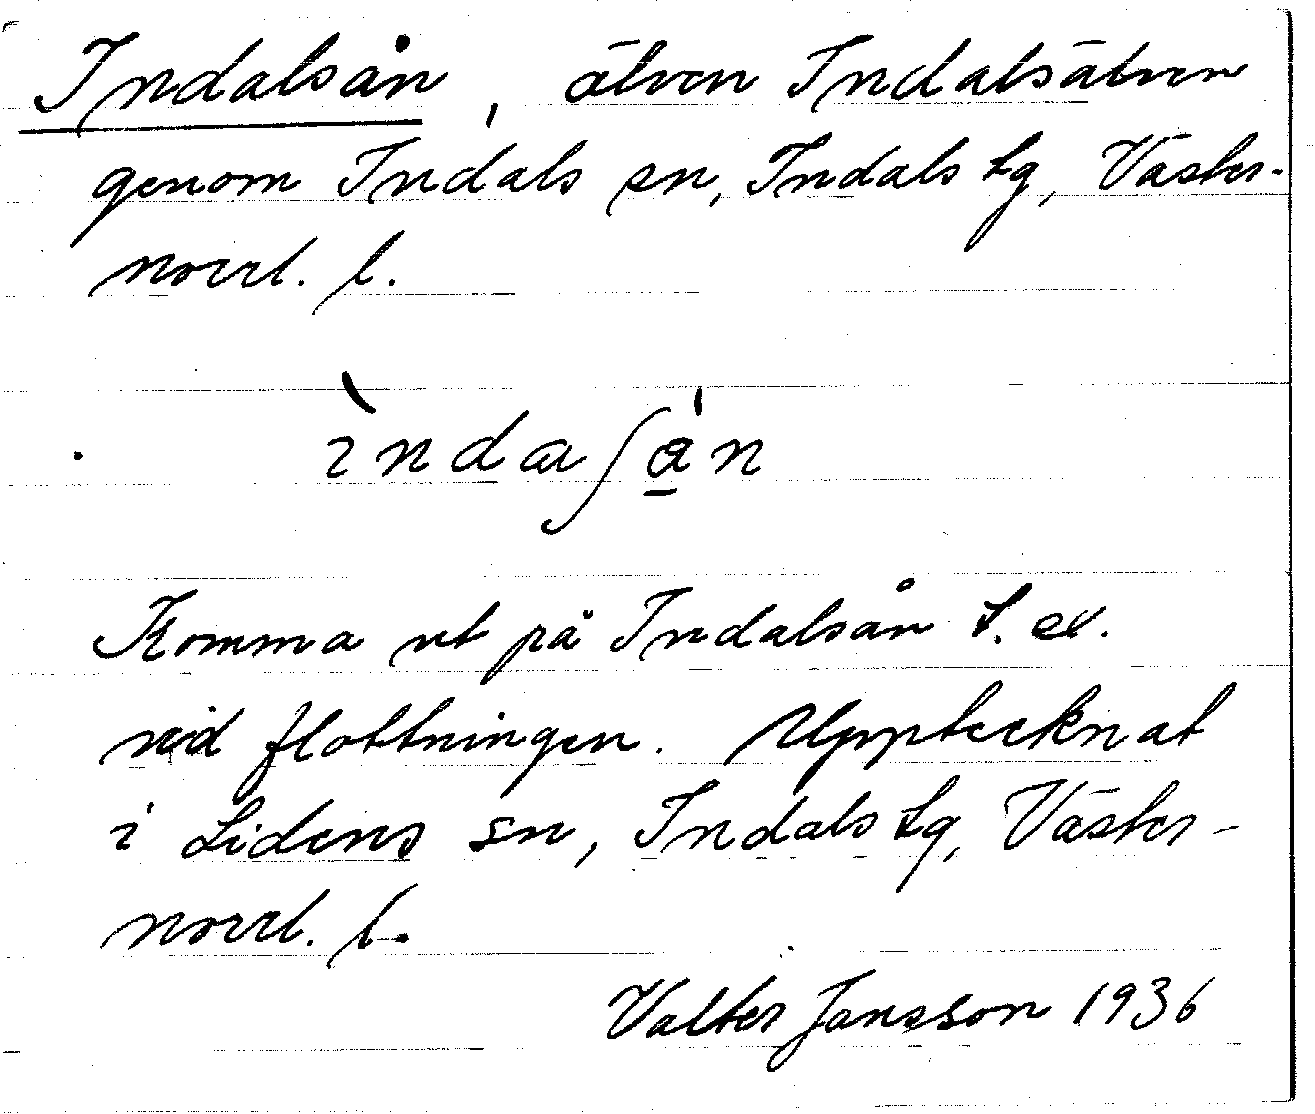 Indalsån, älven Indalsälven
genom Indals sn, Indals tg, Väster-
norrl. l.
ìndaʃǻ̱n
Komma ut på Indalsån t. ex.
vid flottningen. Upptecknat
i Lidens sn, Indals tg, Väster-
norrl. l.
Valter Jansson 1936